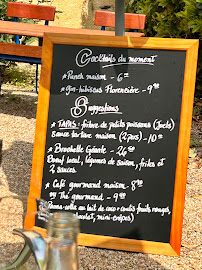 Cocktails du moment
* Punch maison - 6€
* Gin-hibiscus Florencière - 9€
Suggestions
* TAPAS : friture de petits poissons (Joels)
Sauce tartare maison (2 pers) - 10€
* Brochette Géante - 26€
Boeuf local, légumes de saison, frites et
2 sauces
* Café gourmand maison - 8€
ou Thé gourmand - 9€
au lait de coco + coulis fruits rouges,
chocolat, mini-crêpes)